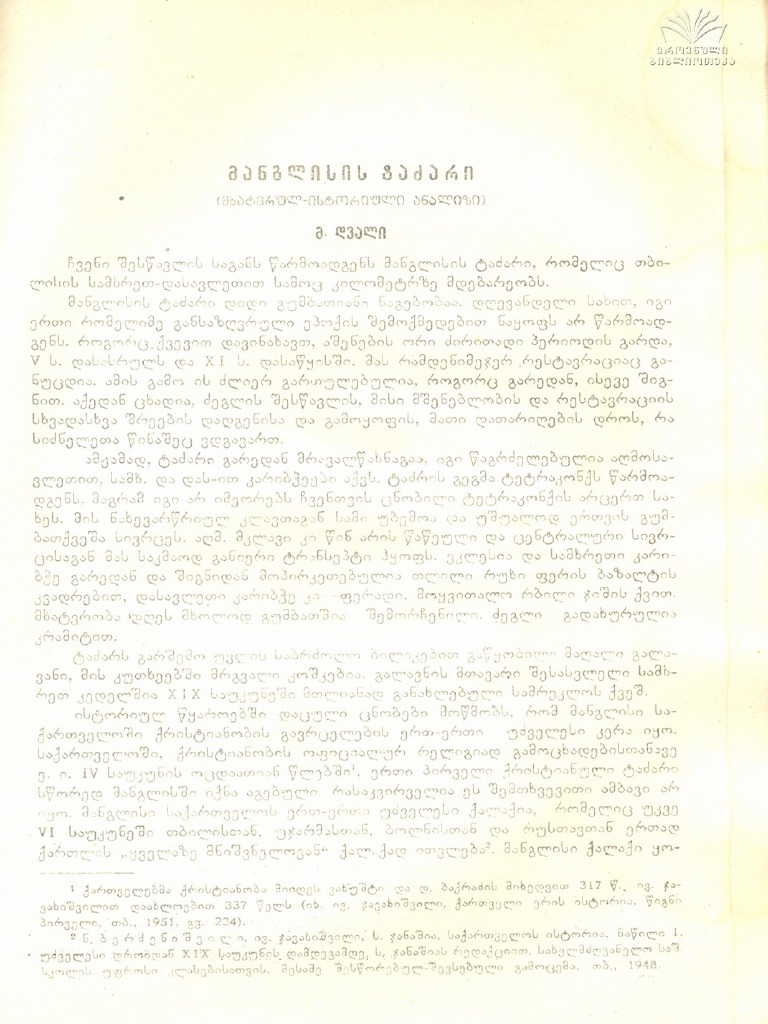 ეროვნული
ბიბლიოთეკა
მანგლისის ტაძარი
(მხატვრულ-ისტორიული ანალიზი)
მ. დვალი
ჩვენი შესწავლის საგანს წარმოადგენს მანგლისის ტაძარი, რომელიც თბი-
ლისის სამხრეთ-დასავლეთით სამოც კილომეტრზე მდებარეობს.
მანგლისის ტაძარი დიდი გუმბათიანი ნაგებობაა. დღევანდელი სახით, იგი
ერთი რომელიმე განსაზღვრული ეპოქის შემოქმედებით ნაყოფს არ წარმოად-
გენს. როგორც ქვევით დავინახავთ, აშენების ორი ძირითადი პერიოდის გარდა,
V ს. დასასრულს და XI ს. დასაწყისში. მას რამდენიმეჯერ რესტავრაციაც გა-
ნუცდია. ამის გამო ის ძლიერ გართულებულია, როგორც გარედან, ისევე შიგ-
ნით. აქედან ცხადია, ძეგლის შესწავლის, მისი მშენებლობის და რესტავრაციის
სხვადასხვა შრეების დადგენისა და გამოყოფის, მათი დათარიღების დროს, რა
სიძნელეთა წინაშეც ვდგავართ.
ამჟამად, ტაძარი გარედან მრავალწახნაგაა, იგი წაგრძელებულია აღმოსა-
ვლეთით, სამხ. და დას-ით კარიბჭეები აქვს. ტაძრის გეგმა ტეტრაკონქს წარმოა-
დგენს, მაგრამ იგი არ იმეორებს ჩვენთვის ცნობილი ტეტრაკონქის არცერთ სა-
ხეს. მის ნახევარწრიულ კლავთაგან სამი უბემოა და უშუალოდ ერთვის გუმ-
ბათქვეშა სივრცეს. აღმ. მკლავი კი წინ არის წაწეული და ცენტრალური სივრ-
ცისაგან მას საკმაოდ განიერი ტრანსეპტი ჰყოფს. ეკლესია და სამხრეთი კარი-
ბჭე გარედან და შიგნიდან მოპირკეთებულია თლილი რუხი ფერის ბაზალტის
კვადრებით, დასავლეთი კარიბჭე კი — ფერადი, მოყვითალო რბილი ჯიშის ქვით.
მხატვრობა დღეს მხოლოდ გუმბათშია შემორჩენილი. ძეგლი გადახურულია
კრამიტით.
ტაძარს გარშემო უვლის საბრძოლო ბილიკებით გაწყობილი მაღალი გალა-
ვანი, მის კუთხეებში მრგვალი კოშკებია. გალავნის მთავარი შესასვლელი სამხ-
რეთ კედელშია XIX საუკუნეში მთლიანად განახლებული სამრეკლოს ქვეშ.
ისტორიულ წყაროებში დაცული ცნობები მოწმობს, რომ მანგლისი სა-
ქართველოში ქრისტიანობის გავრცელების ერთ-ერთი უძველესი კერა იყო.
საქართველოში, ქრისტიანობის ოფიციალურ რელიგიად გამოცხადებისთანავე
ე. ი. IV საუკუნის ოცდაათიან წლებში¹, ერთი პირველი ქრისტიანული ტაძარი
სწორედ მანგლისში იქნა აგებული. რასაკვირველია ეს შემთხვევითი ამბავი არ
იყო. მანგლისი საქართველოს ერთ-ერთი უძველესი ქალაქია, რომელიც უკვე
VI საუკუნეში თბილისთან, უჯარმასთან, ბოლნისთან და რუსთავთან ერთად
ქართლის „ყველაზე მნიშვნელოვან“ ქალაქად ითვლება². მანგლისი ქალაქი ყო-
¹ ქართველებმა ქრისტიანობა მიიღეს ვახუშტი და დ. ბაქრაძის მიხედვით 317 წ., ივ. ჯა-
ვახიშვილით დაახლოებით 337 წელს (იხ. ივ. ჯავახიშვილი, ქართველი ერის ისტორია, წიგნი
პირველი, თბ., 1951, გვ. 234).
² ნ. ბერძენიშვილი, ივ. ჯავახიშვილი, ს. ჯანაშია, საქართველოს ისტორია, ნაწილი I,
უძველესი დროიდან XIX საუკუნის დამდეგამდე, ს. ჯანაშიას რედაქციით, სახელმძღვანელო საშ.
სკოლის უფროსი კლასებისათვის, მესამე შესწორებულ-შევსებული გამოცემა, თბ., 1948.